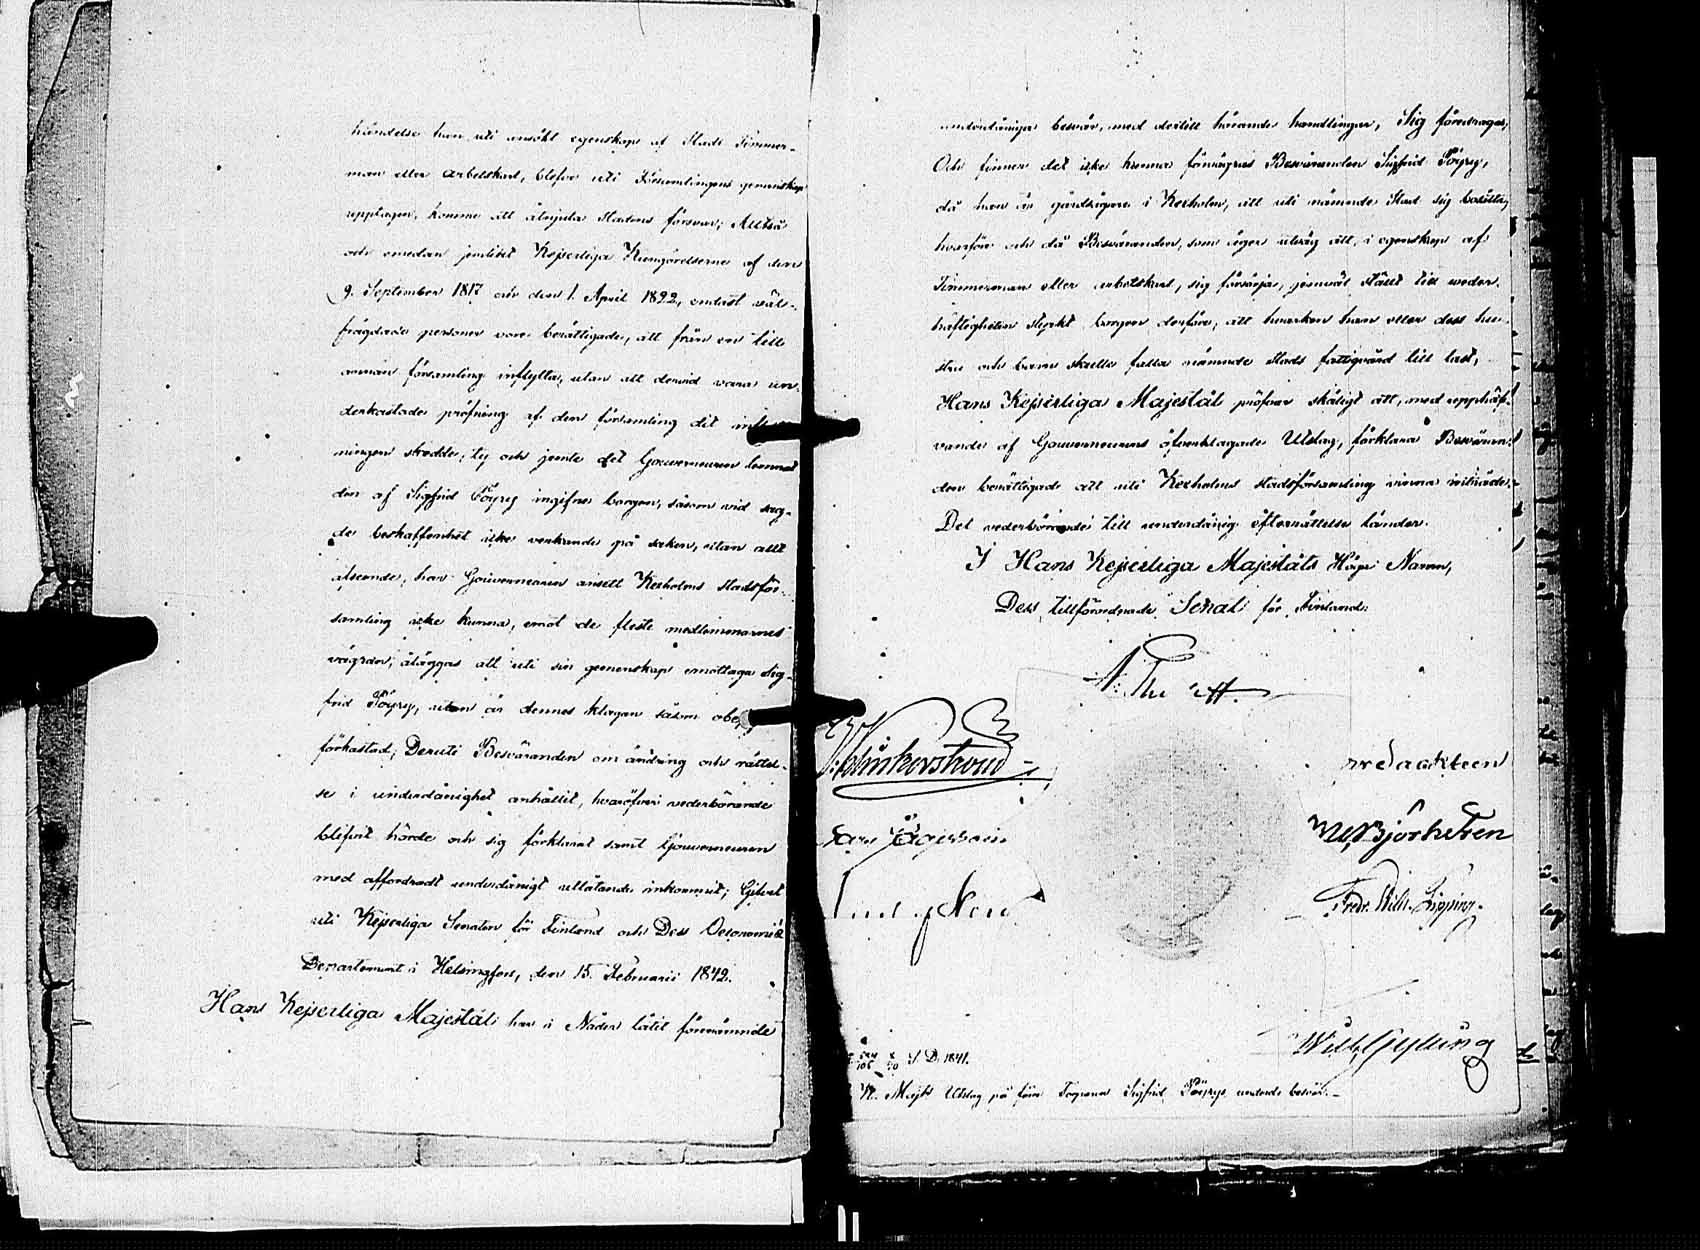 händelse han uti ansökt egenskap af Stads Timmer-
man eller arbetskarl, blefve uti Församlingens gemenskap
upptagen, komme att åtnjuta stadens försvar; Alltså
och emedan jemlikt Kejserliga Kungörelserne af den
9. September 1817 och den 1. April 1822, endast väl-
frägdade personer vore berättigade, att från en till
annan församling inflytta, utan att dervid vara un-
derkastade pröfning af den församling dit
ningen skedde; ty och jemte det Gouverneuren
den af Sigfrid Pöyry ingifne borgen, såsom vid sag-
de beskaffenhet icke verkande på saken, utan allt
afseende, har Gouverneuren ansett Kexholms stadsför-
samling icke kunna, emot de fleste medlemmarnes
vägran, åläggas att uti sin gemenskap emottaga Sig-
frid Pöyry, utan är dennes klagan såsom
förkastad; Deruti Besväranden om ändring och rättel-
se i underdånighet anhållit, hvaröfver vederbörande
blifvit hörde och sig förklarat samt Gouverneuren
med affordradt underdånigt utlåtande inkommit; Gifvet
uti Kejserliga Senaten för Finland och Dess Oeconomie
Departement i Helsingfors, den 15. Februarii 1842.
Hans Kejserliga Majestät har i Nåder låtit förenämnde
underdåniga besvär, med dertill hörande handlingar, Sig föredragas,
Och finner det icke kunna förvägras Besväranden Sigfrid Pöyry,
då han är gårdsägare i Kexholm, att uti nämnde Stad sig bosätta,
hvarföre och då Besväranden, som äger utväg att, i egenskap af
Timmerman eller arbetskarl, sig försörja, jemväl ställt till veder-
häftigheten styrkt borgen derföre, att hvarken han eller dess hu-
stru och barn skulle falla nämnde stads fattigvård till last,
Hans Kejserliga Majestät pröfvar skäligt att, med upphäf-
vande af Gouverneurens öfverklagade Utslag, förklara Besväran-
den berättigad att uti Kexholms stadsförsamling vinna inträde.
Det vederbörande till underdånig efterrättelse länder.
I Hans Kejserliga Majestäts Höga Namn,
Dess tillförordnade Senat för Finland:
Klinckowström
W. Björksten
Fredr. Wilh. Pipping.
Wilh. Gylling
S. D. 1841.
K. Majts Utslag på förre Torparen Sigfrid Pöyrys underd: besvär.